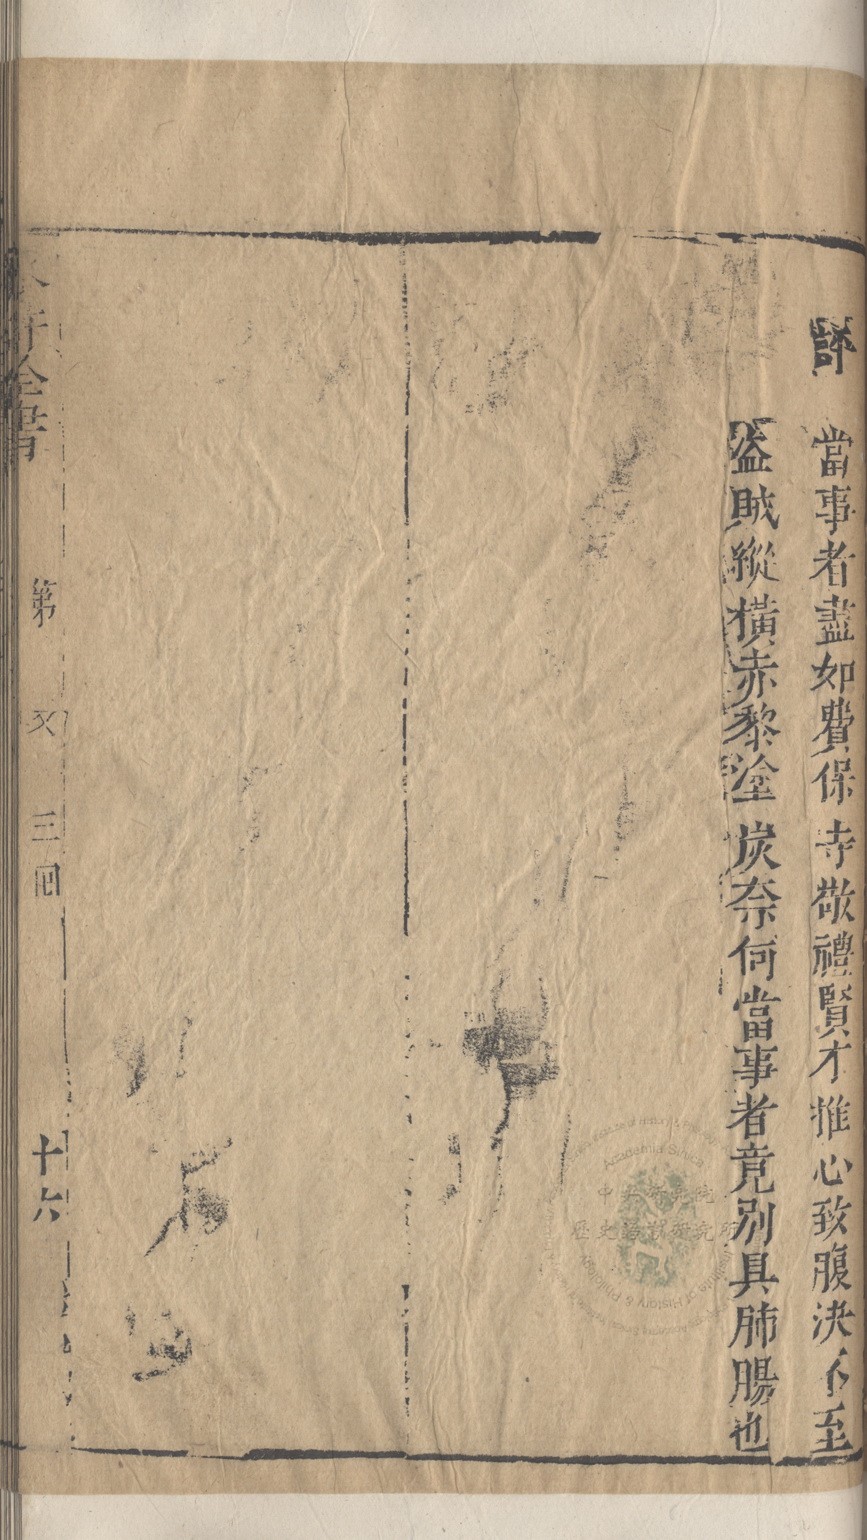 評　當事者盡如費保寺敬禮賢才推心致腹決不至
盜賊縱橫赤黎塗炭奈何當事者竟別具肺腸也
全書　第　三囘　十六
中央研究院
歷史語言研究所
Academia Sinica